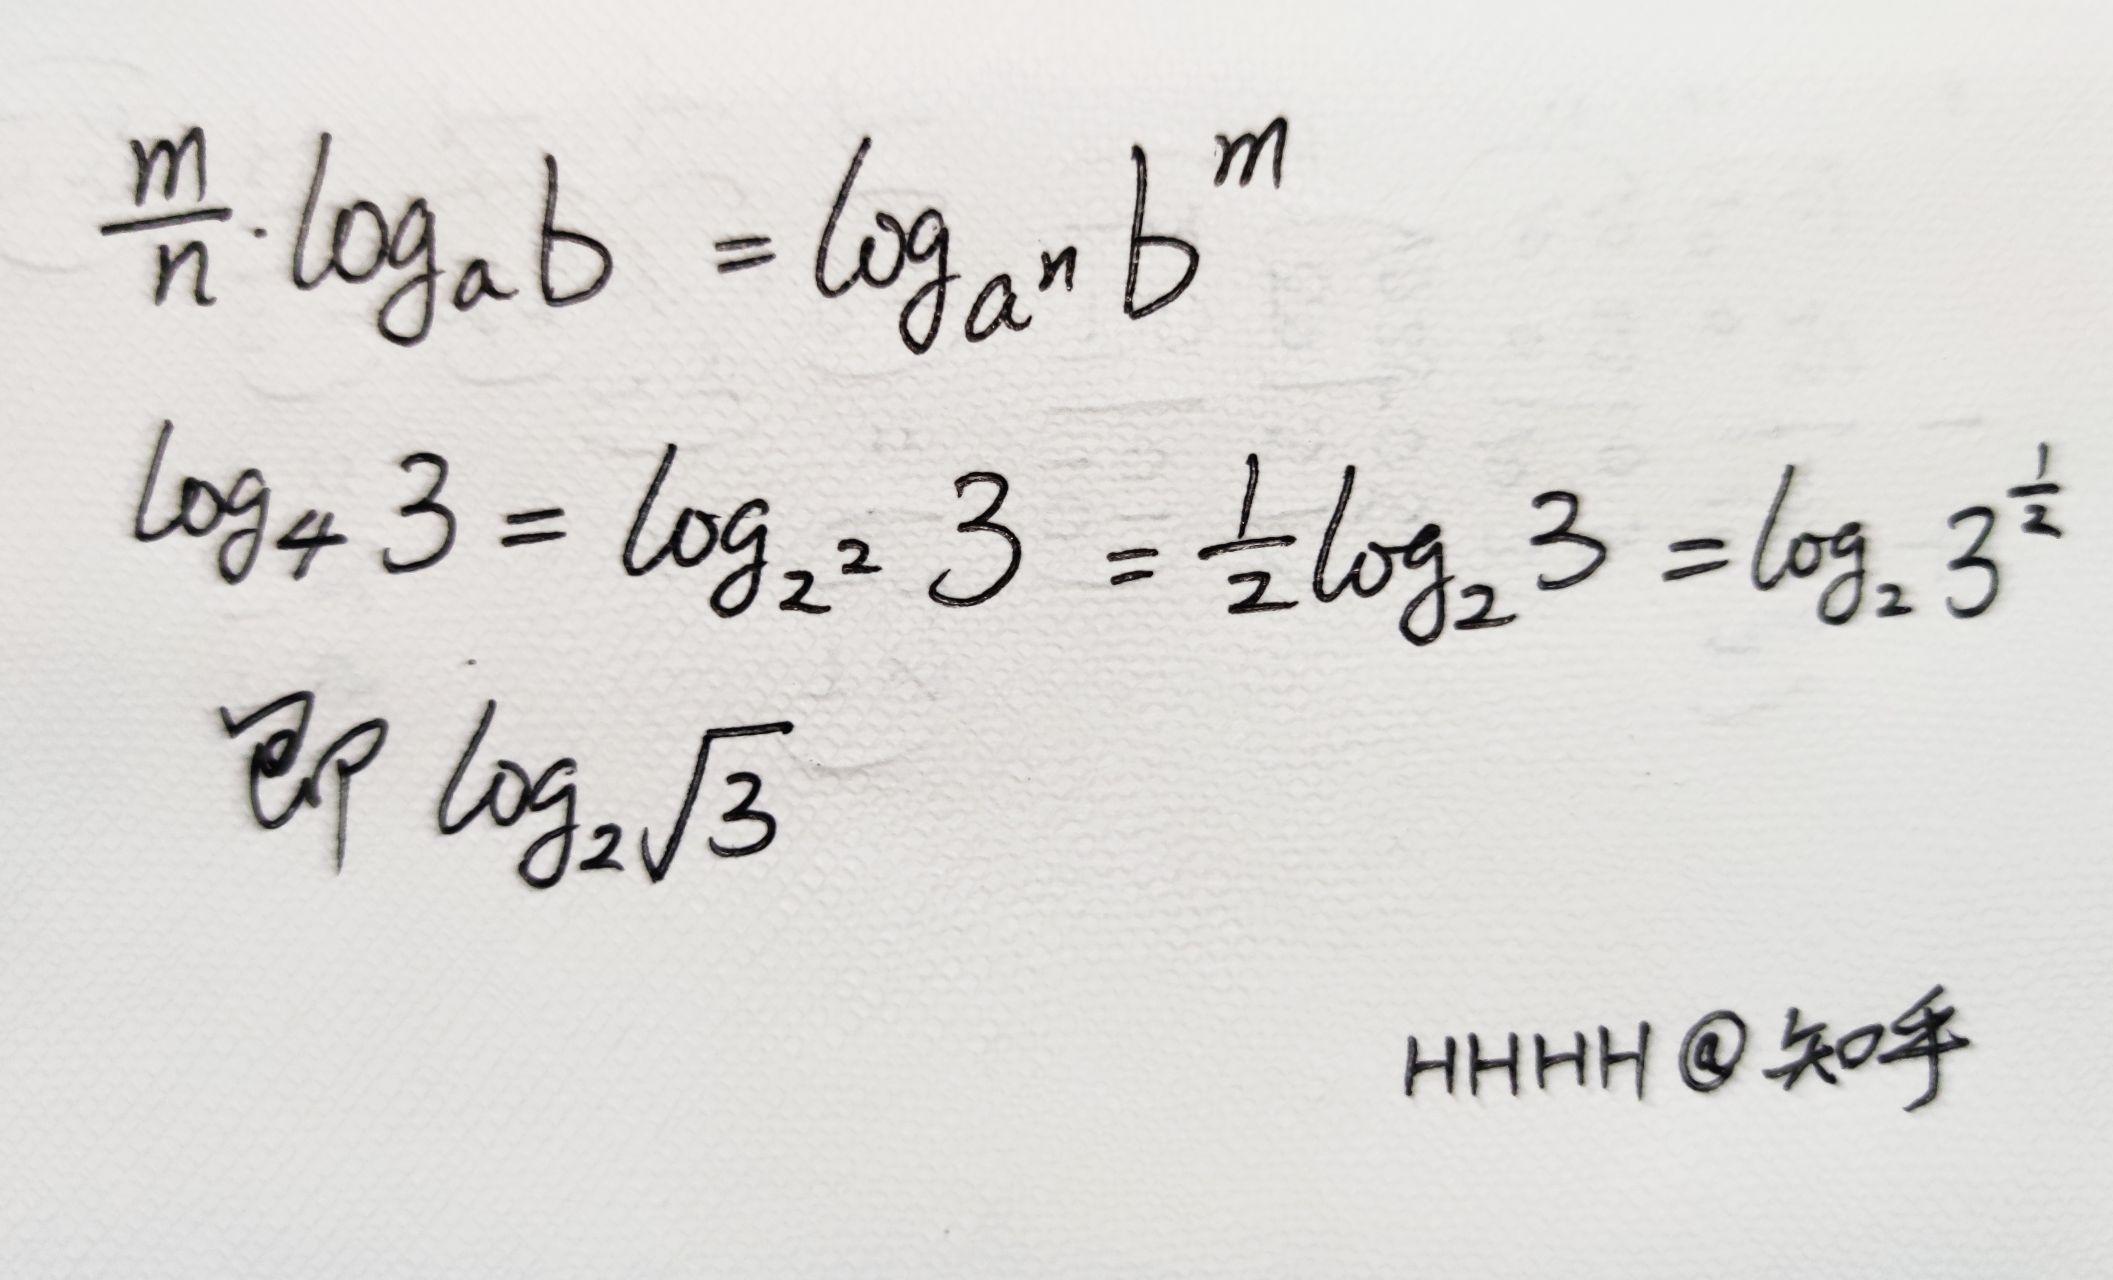 $\frac{m}{n} \cdot \log_a b = \log_{a^n} b^m$
$\log_4 3 = \log_{2^2} 3 = \frac{1}{2} \log_2 3 = \log_2 3^{\frac{1}{2}}$
即 $\log_2 \sqrt{3}$
HHHH@知乎